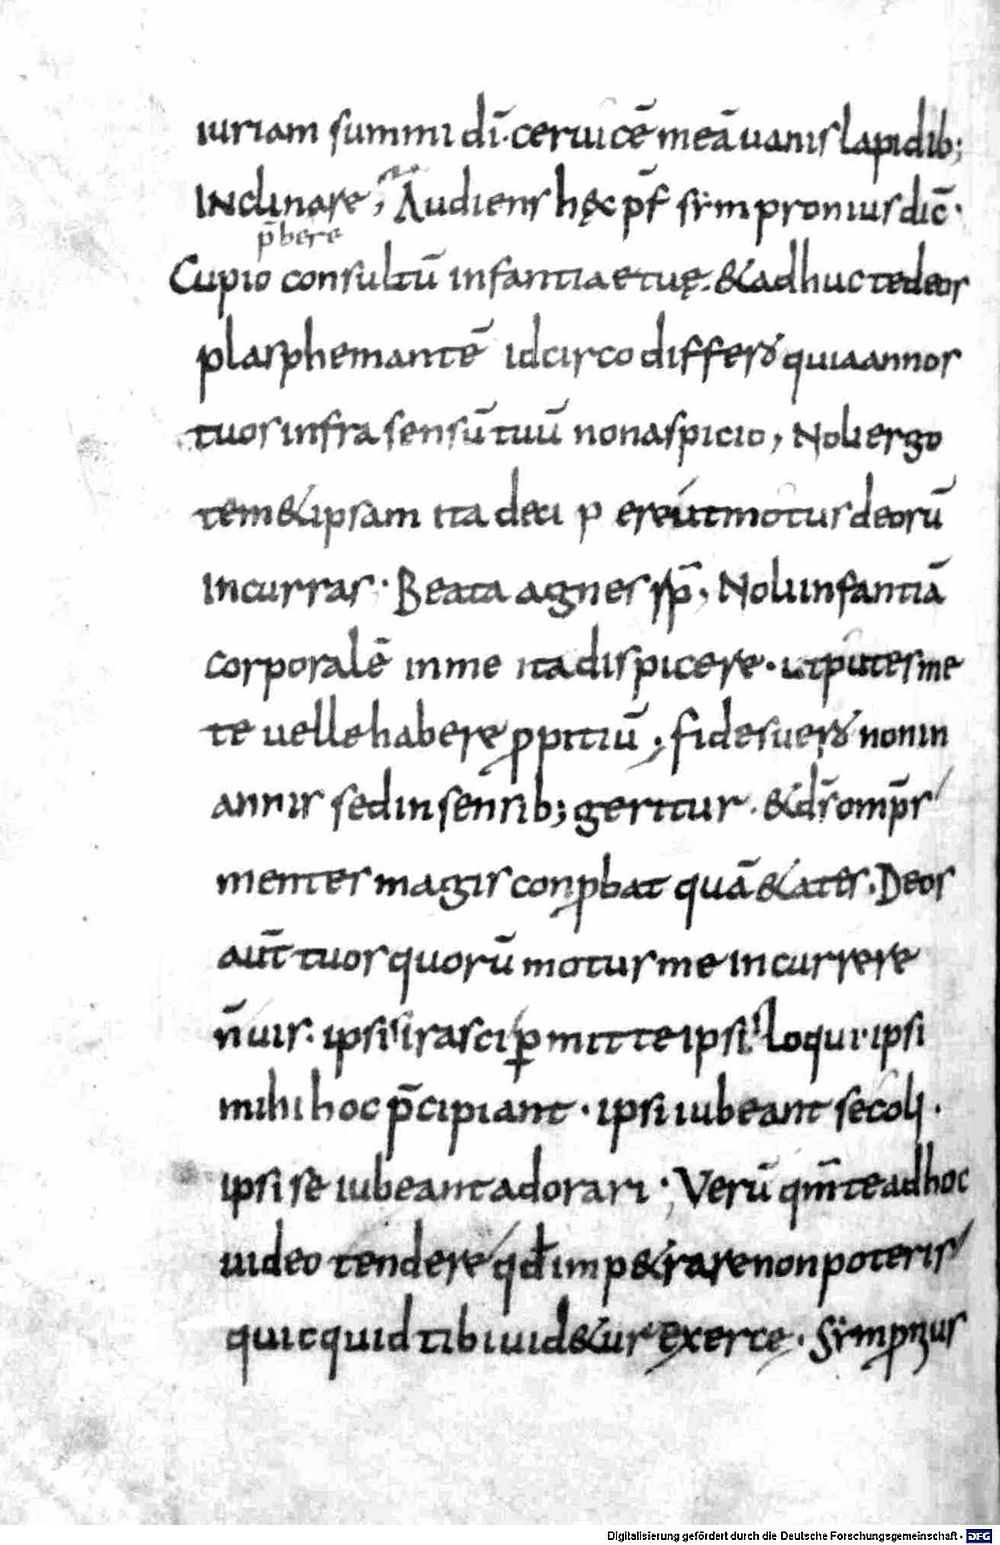 iuriam summi dī· ceruicē meā uanis lapidib;
Inclinare, Audiens hęc p̄f simpronius dic̄·
p̄bere
Cupio consultū infantiae tuę· & adhuc te deos
plasphemantē idcirco differo quia annos
tuos infra sensū tuū non aspicio, Noli ergo
tem& ipsam ita deci p ere ut motus deorū
Incurras· Beata agnes rs̄p, Noli infantiā
corporalē in me ita dispicere· ut putes me
te uelle habere ꝓpitiū, fides uero non in
annis sed in sensib; geritur· & d̄s omp̄s
mentes magis conꝓbat quā &ates· Deos
aut̄ tuos quorū motus me incurrere
n̄ uis· ipsi irasci ꝑmitte ipsi loqui· ipsi
mihi hoc p̄cipiant· ipsi iubeant se coli·
ipsi se iubeant adorari·; Verū qm̄ te ad hoc
uideo tendere qđ imp&rare non poteris
quicquid tibi uid&ur exerce· Simꝓnius